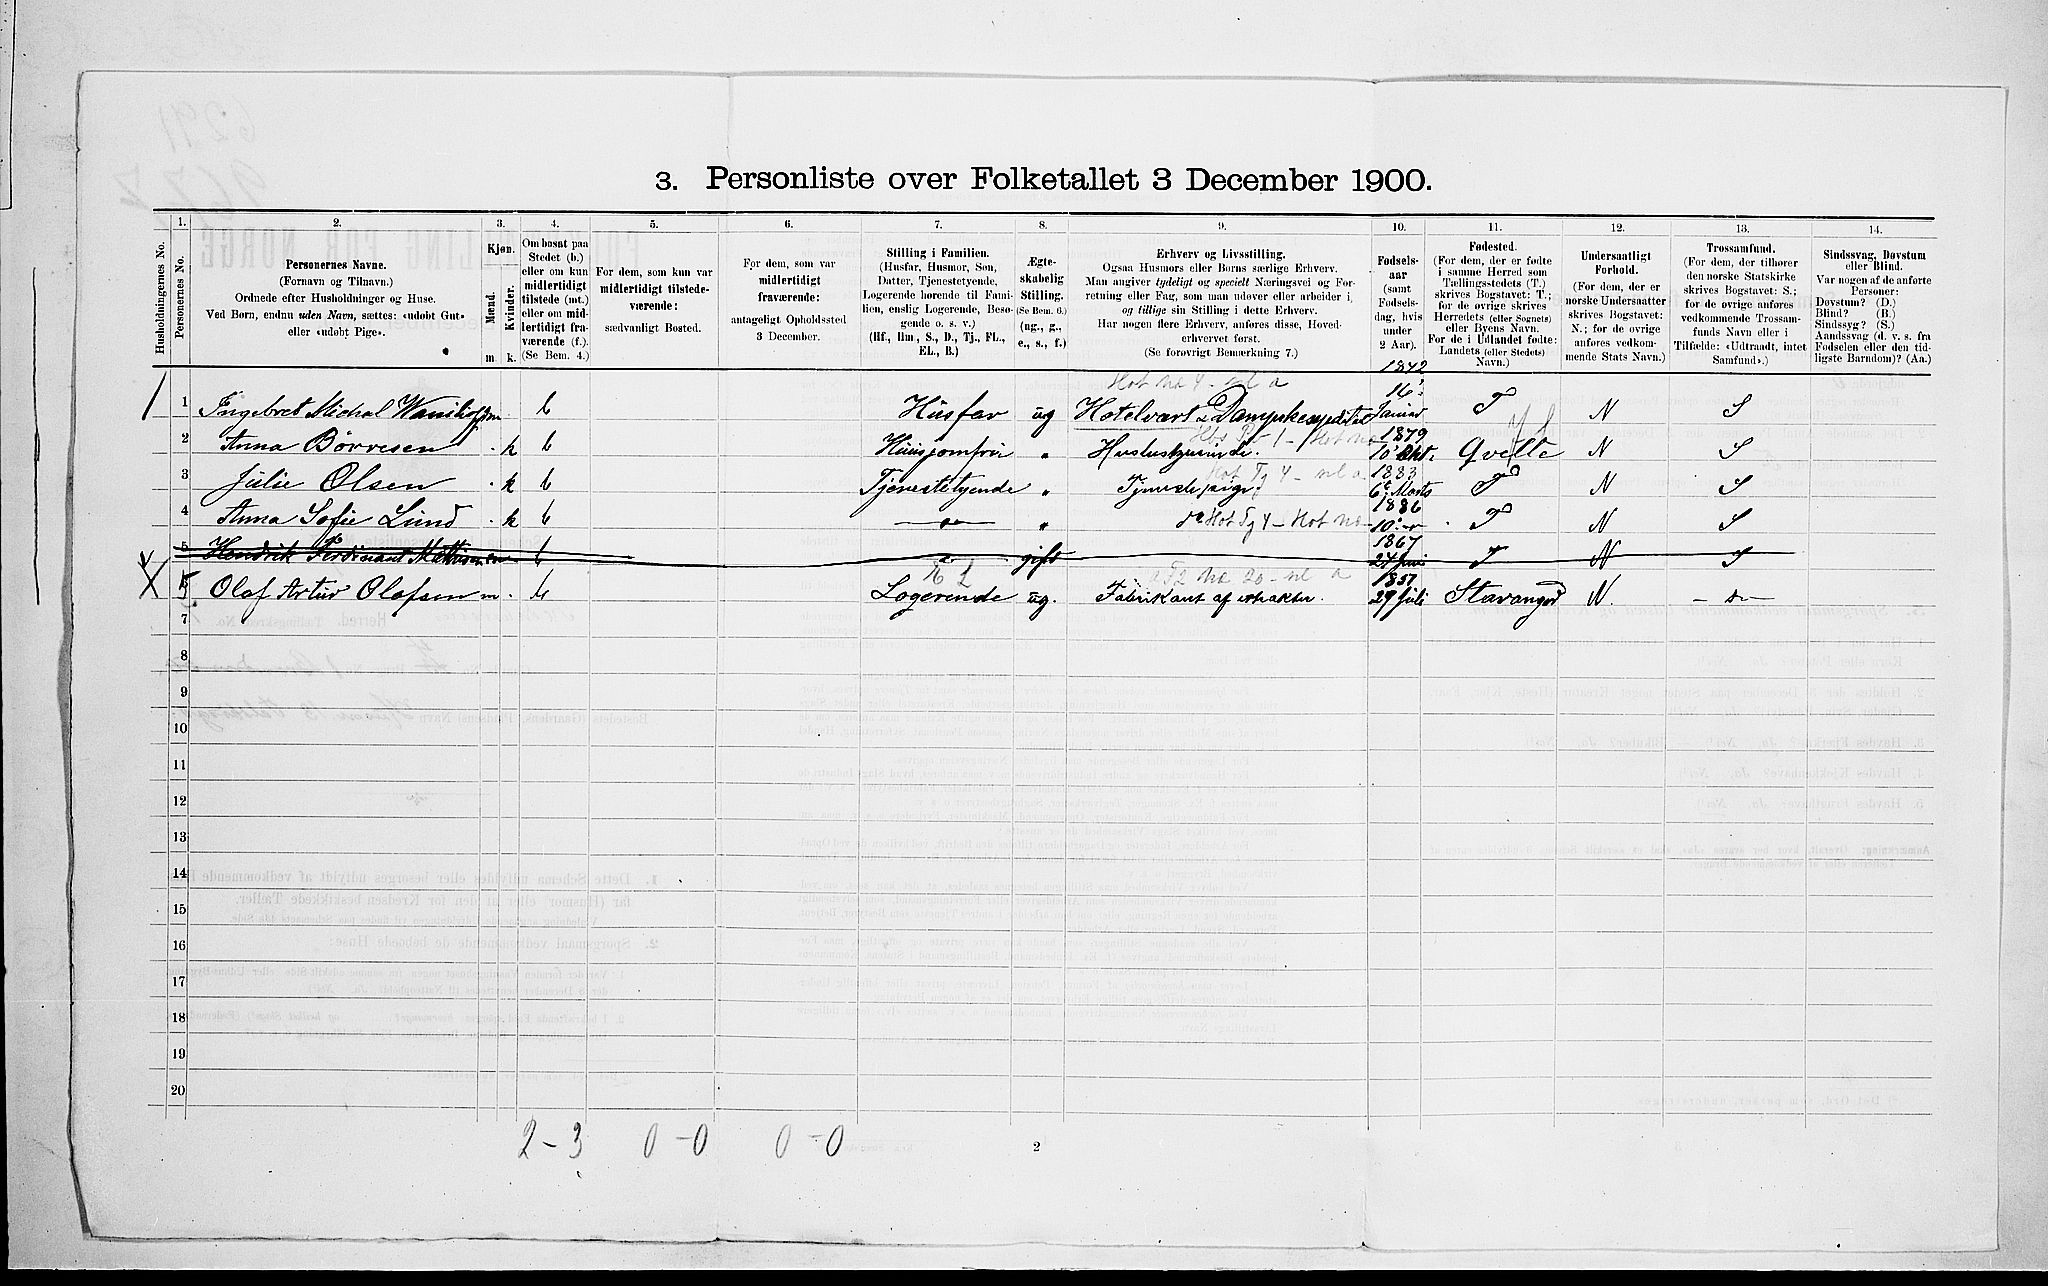 3. Personliste over Folketallet 3 December 1900.
1. 2. 3. 4. 5. 6. 7. 8. 9. 10. 11. 12. 13. 14.
Husholdningernes No.
Personernes No.
Personernes Navne.
(Fornavn og Tilnavn.)
Ordnede efter Husholdninger og Huse.
Ved Børn, endnu uden Navn, sættes: «udøbt Gut»
eller «udøbt Pige».
Kjøn.
Mænd.
Kvinder.
m. k.
Om bosat paa
Stedet (b.)
eller om kun
midlertidigt
tilstede (mt.)
eller om mid-
lertidigt fra-
værende (f.).
(Se Bem. 4.)
For dem, som kun var
midlertidigt tilstede-
værende:
sædvanligt Bosted.
For dem, som var
midlertidigt
fraværende:
antageligt Opholdssted
3 December.
Stilling i Familien.
(Husfar, Husmor, Søn,
Datter, Tjenestetyende,
Logerende hørende til Fami-
lien, enslig Logerende, Besø-
gende o. s. v.)
(Hf., Hm., S., D., Tj., FL.,
EL., B.)
Ægte-
skabelig
Stilling.
(Se Bem. 6.)
(ug., g.,
e., s., f.)
Erhverv og Livsstilling.
Ogsaa Husmors eller Børns særlige Erhverv.
Man angiver tydeligt og specielt Næringsvei og For-
retning eller Fag, som man udøver eller arbeider i,
og tillige sin Stilling i dette Erhverv.
Har nogen flere Erhverv, anføres disse, Hoved-
erhvervet først.
(Se forøvrigt Bemerkning 7.)
Fødsels-
aar
(samt
Fødsels-
dag, hvis
under
2 Aar).
Fødested.
(For dem, der er fødte
i samme Herred som
Tællingsstedets (T.)
skrives Bogstavet: T.;
for de øvrige skrives
Herredets (eller Sognets)
eller Byens Navn.
For de i Udlandet fødte:
Landets (eller Stedets)
Navn.)
Undersaatligt
Forhold.
(For dem, der er
norske Undersaatter
skrives Bogstavet:
N.; for de øvrige
anføres vedkom-
mende Stats Navn.)
Trossamfund.
(For dem, der tilhører
den norske Statskirke
skrives Bogstavet: S.;
for de øvrige anføres
vedkommende Trossam-
funds Navn eller i
Tilfælde: «Udtraadt, intet
Samfund».)
Sindssvag, Døvstum
eller Blind.
Var nogen af de anførte
Personer:
Døvstum? (D.)
Blind? (B.)
Sindssyg? (S.)
Aandssvag (d. v. s. fra
Fødselen eller den tid-
ligste Barndom)? (Aa.)
Hot no 4 - nl a 1842
1 Ingebret Michal m b Husfar ug Hotelvært Dampskexpeditør 14 Januar T N S
2 Anna Börresen k b Huusjomfru " 1879 10 Okt. Qvelle N S
3 Julie Olsen k b Tjenestetyende " Tjenestepige 1883 6 Marts T N S
4 Anna Sofie Lund k b — do — " do Hot Tj 4 - Hot no 1886 10 T N S
5 Hendrik Ferdinant b gift 1867 24 Juni T N S
E L
5 Olaf Artur Olafsen m. b Logerende ug. Fabrikant af 1857 29 Juli Stavanger N. — do —
7
8
9
10
11
12
13
14
15
16
17
18
19
20
2 - 3 0 - 0 0 - 0
2